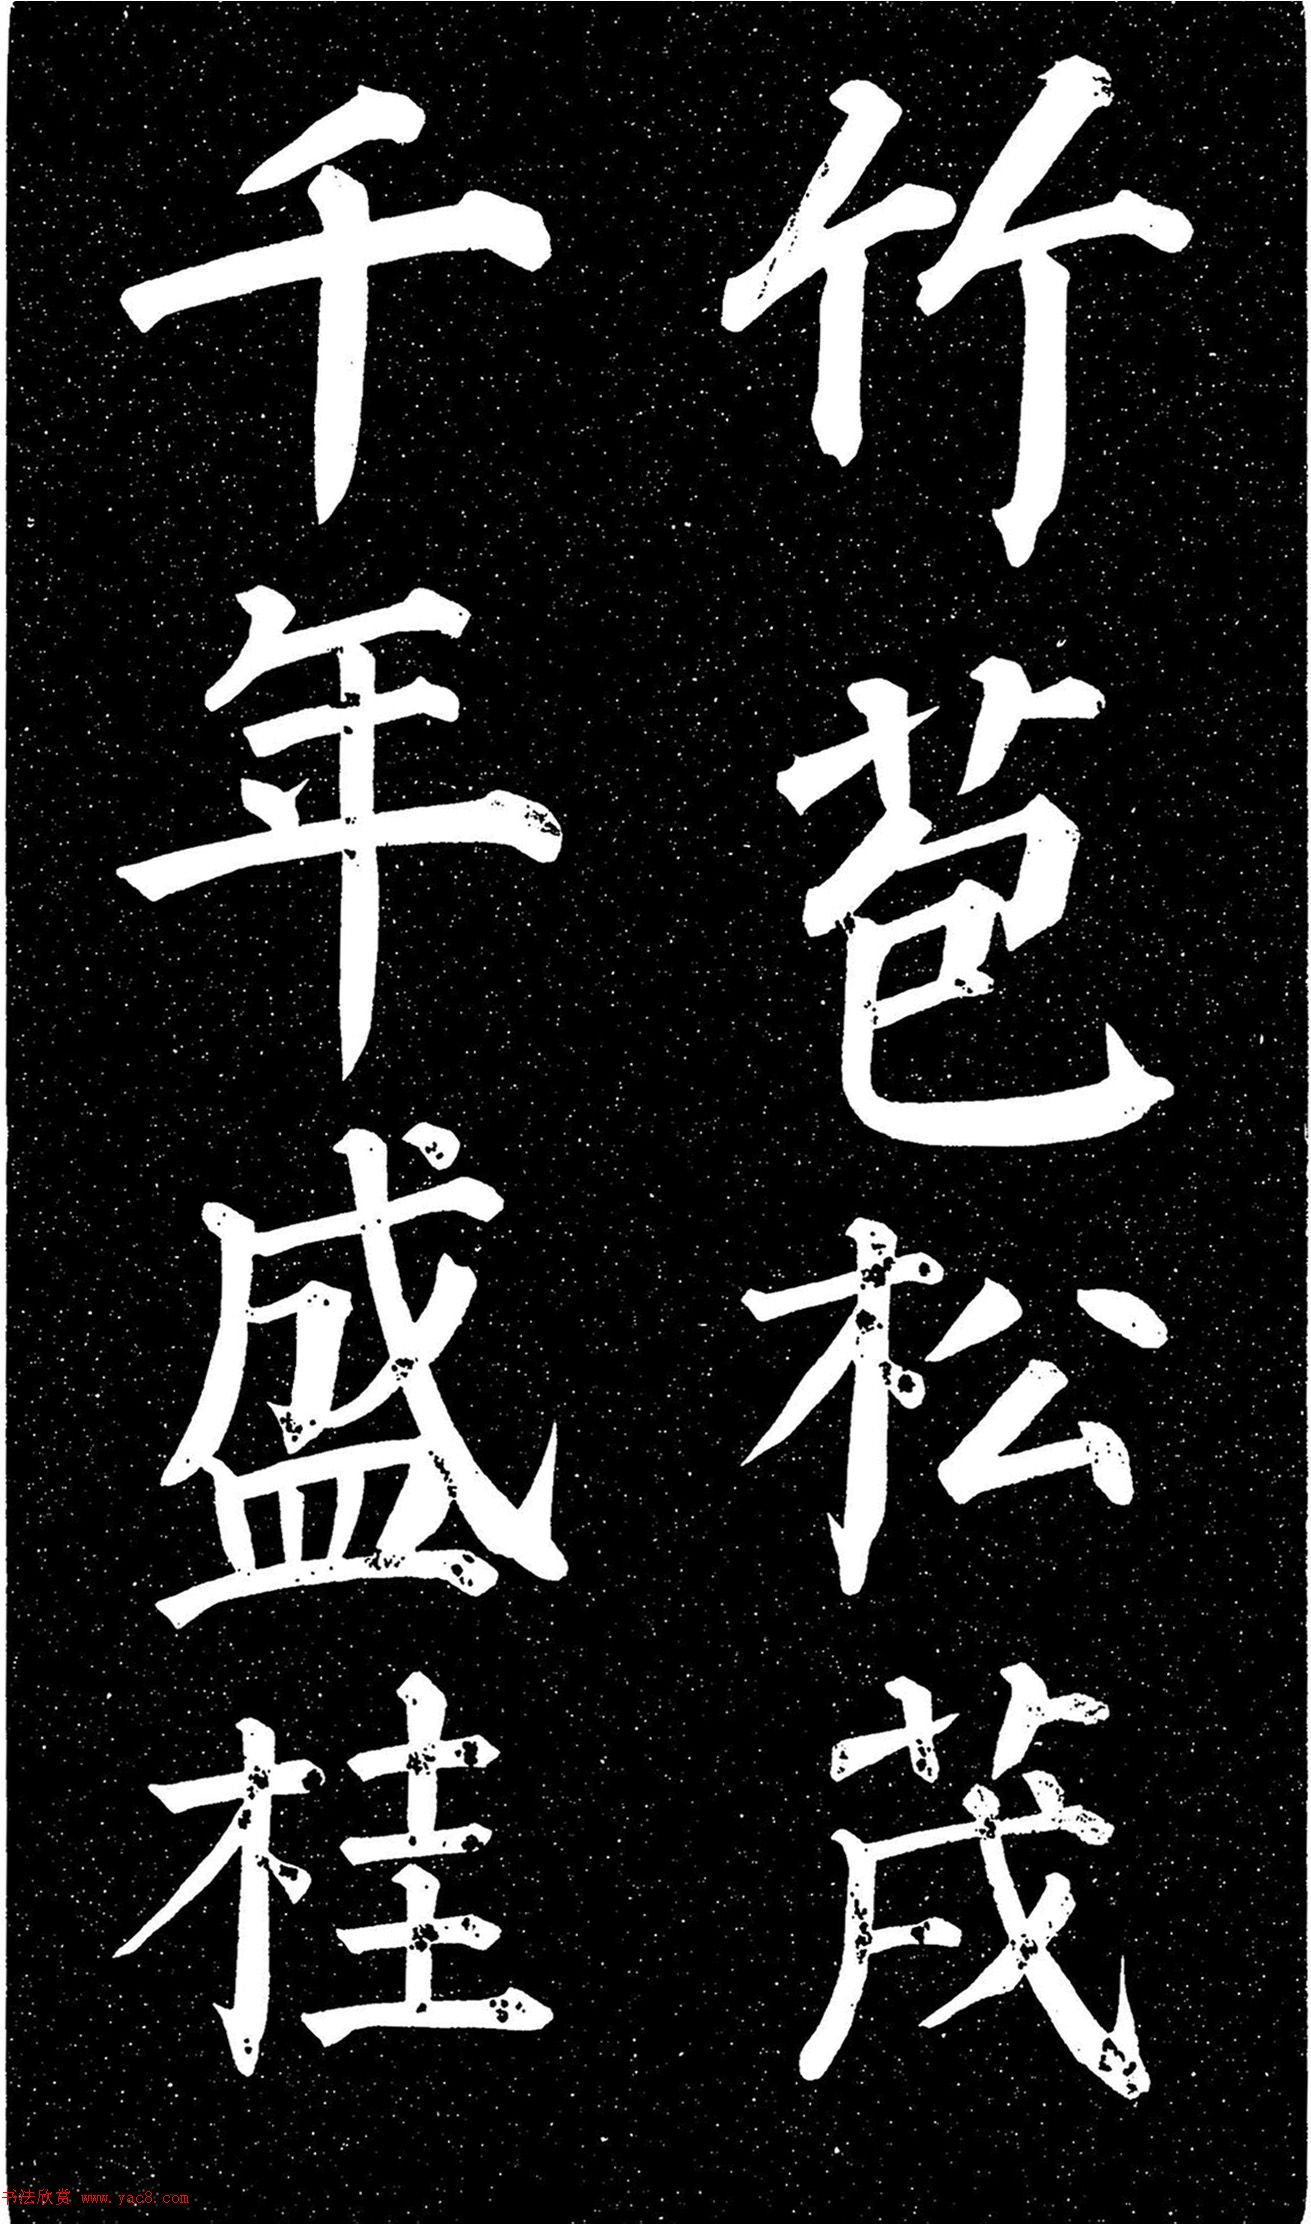 竹苞松茂
千年盛桂
书法欣赏 www.yac8.com